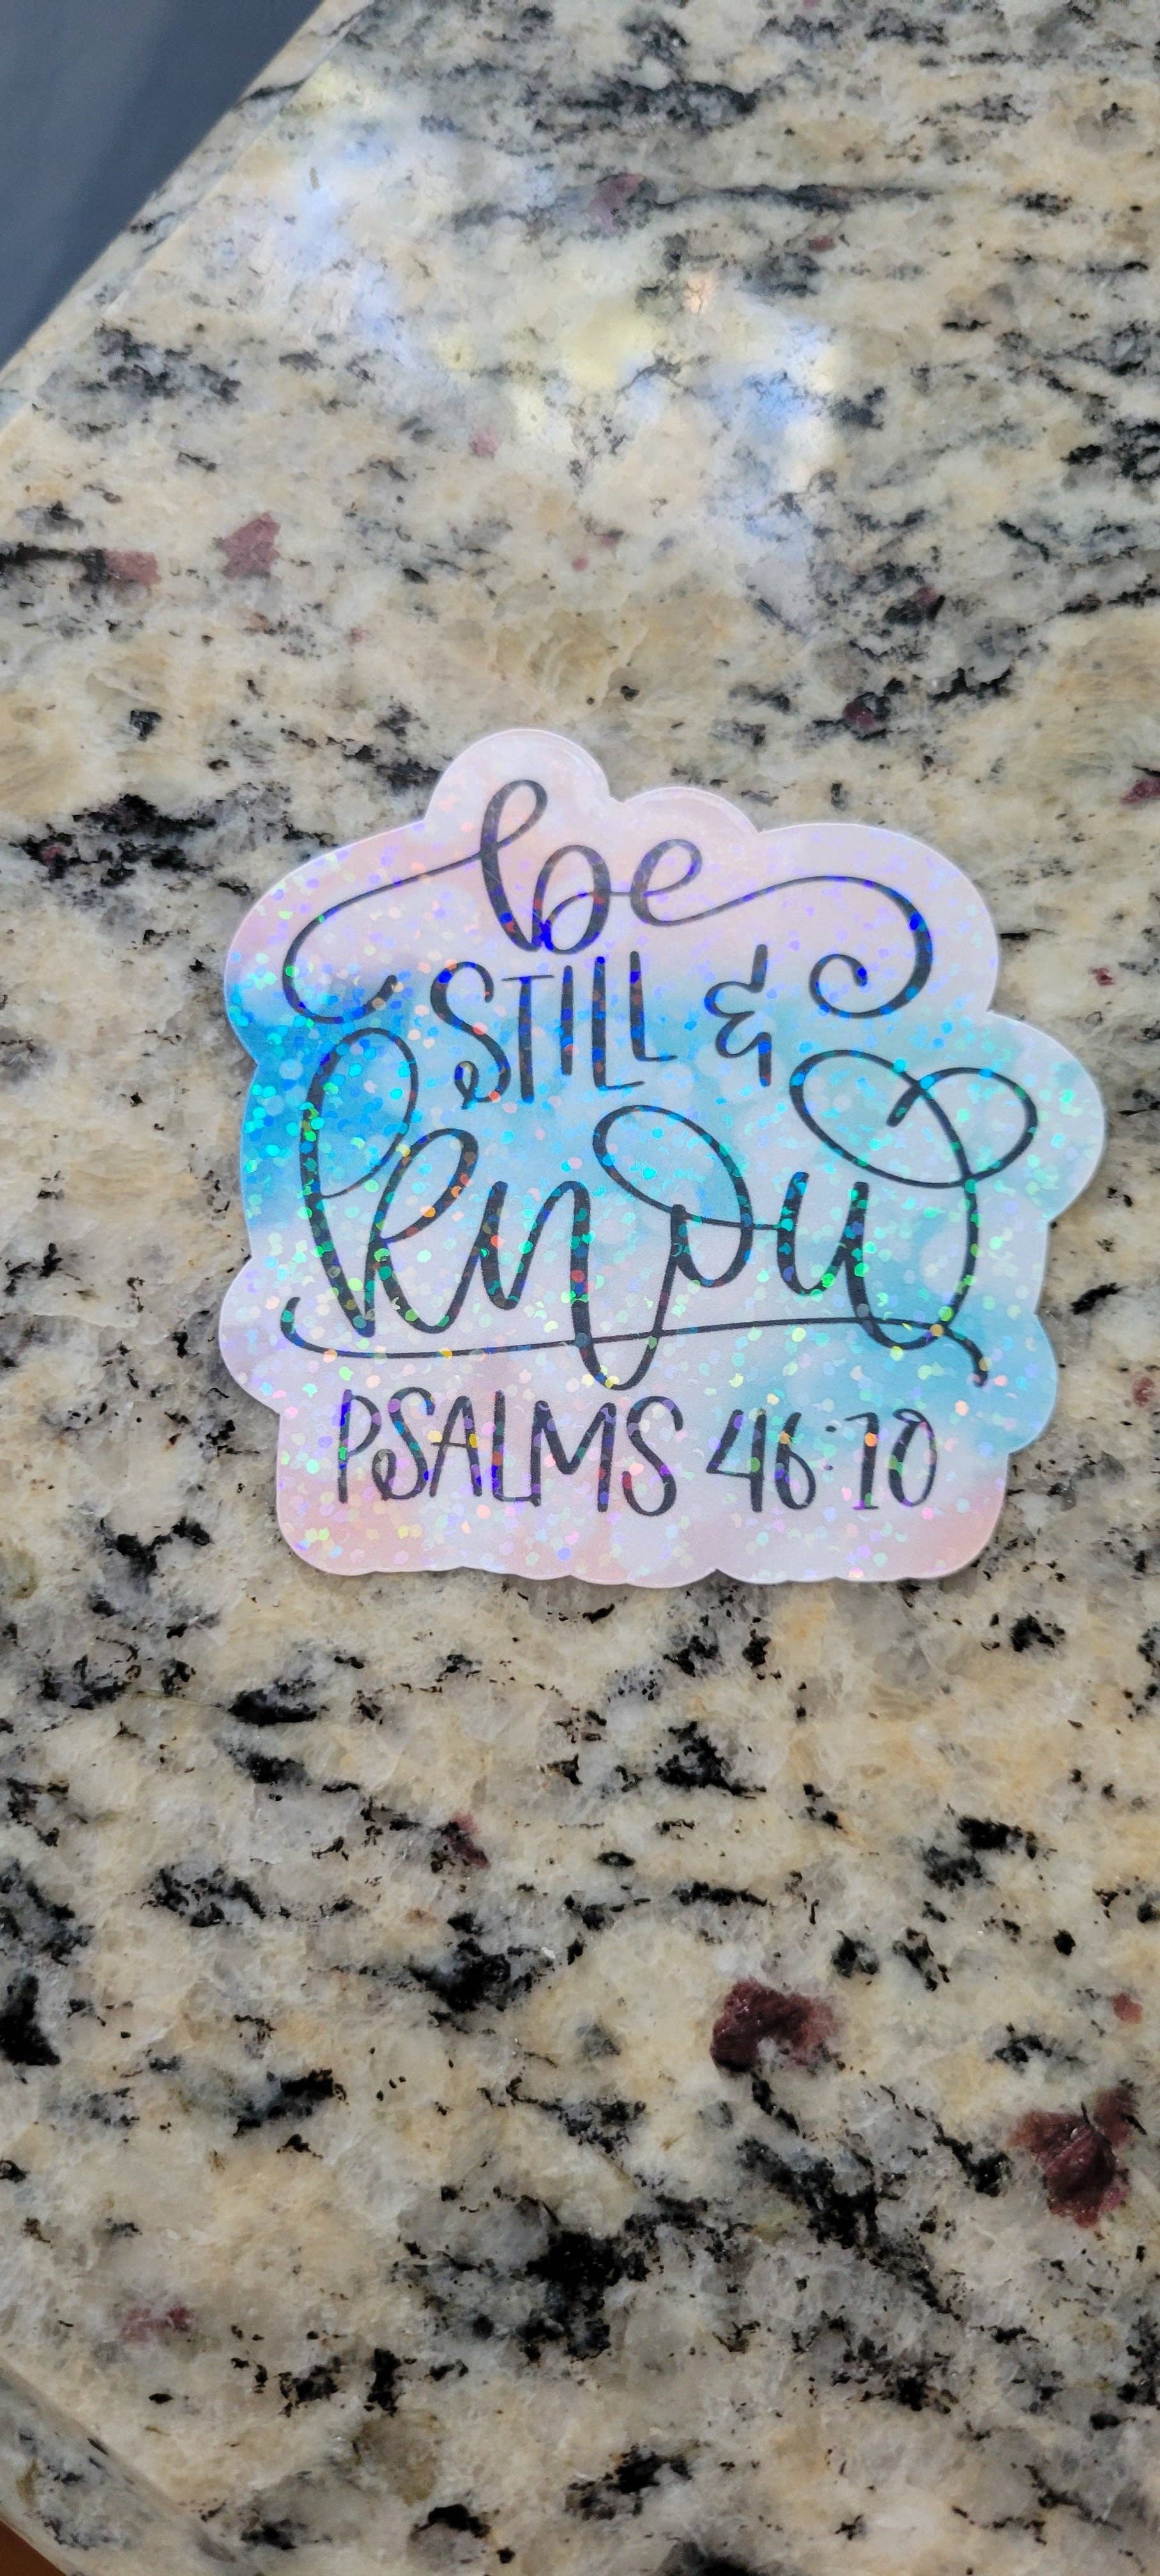 be
STILL &
know
PSALMS 46:10